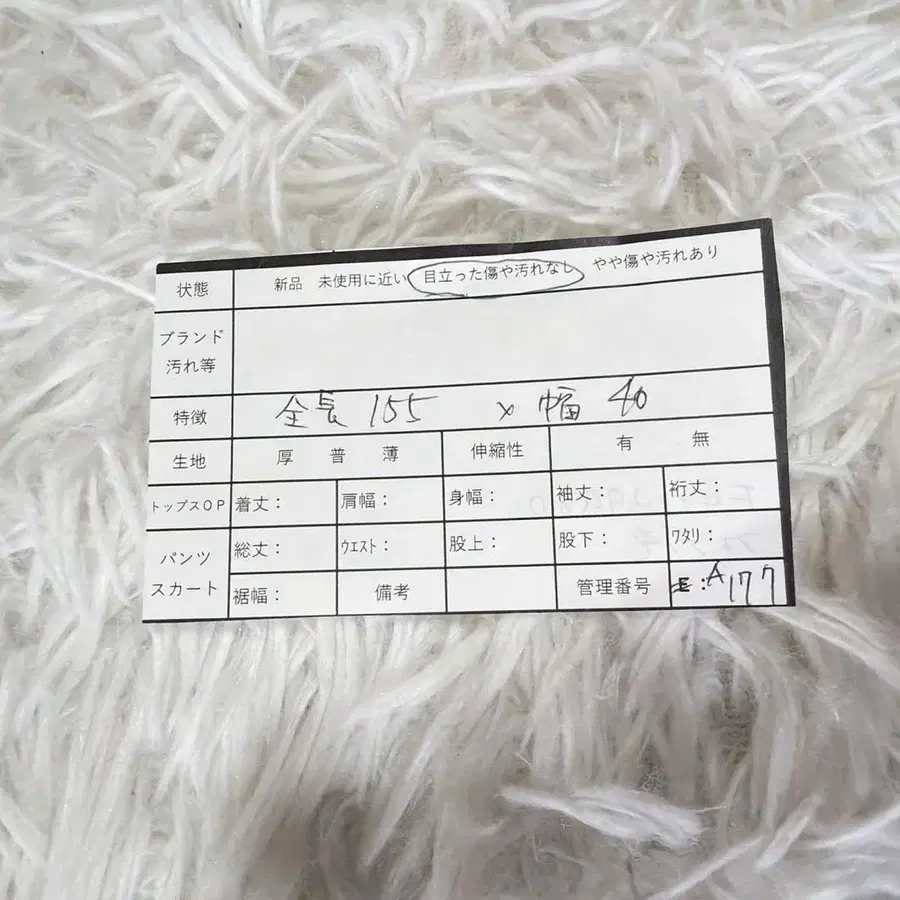 状態 新品 未使用に近い 目立った傷や汚れなし やや傷や汚れあり
ブランド
汚れ等
特徴 全長 155 × 幅 40
生地 厚 普 薄 伸縮性 有 無
トップスOP 着丈： 肩幅： 身幅： 袖丈： 裄丈：
パンツ
スカート
総丈： ウエスト： 股上： 股下： ワタリ：
裾幅： 備考 管理番号 A177